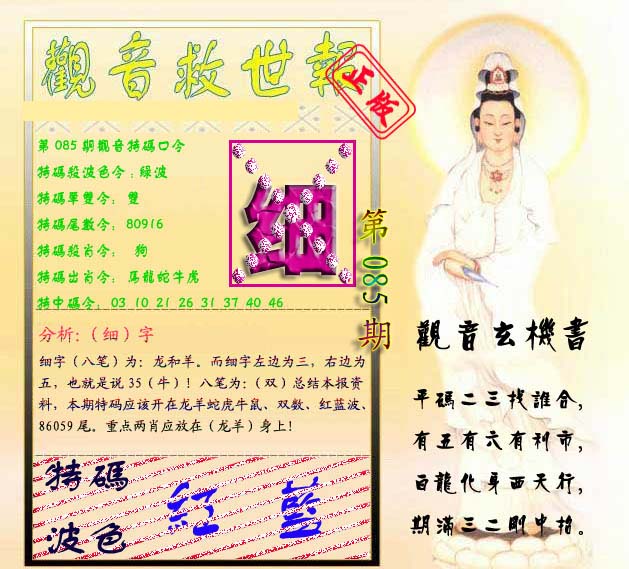 觀音救世報
正版
第085期觀音特碼口令
特碼殺波色令：綠波
特碼單雙令： 雙
特碼尾數令： 80916
特碼殺肖令： 狗
特碼出肖令： 馬龍蛇牛虎
特中碼令： 03 10 21 26 31 37 40 46
细
第085期
分析:（细）字
细字（八笔）为：龙和羊。而细字左边为三，右边为
五，也就是说 35（牛）！八笔为:（双）总结本报资
料，本期特码应该开在龙羊蛇虎牛鼠、双数、红蓝波、
86059 尾。重点两肖应放在（龙羊）身上！
特碼
波色
紅 藍
觀音玄機書
平碼二三找誰合，
有五有六有利市，
白龍化身西天行，
期滿三二剛中指。